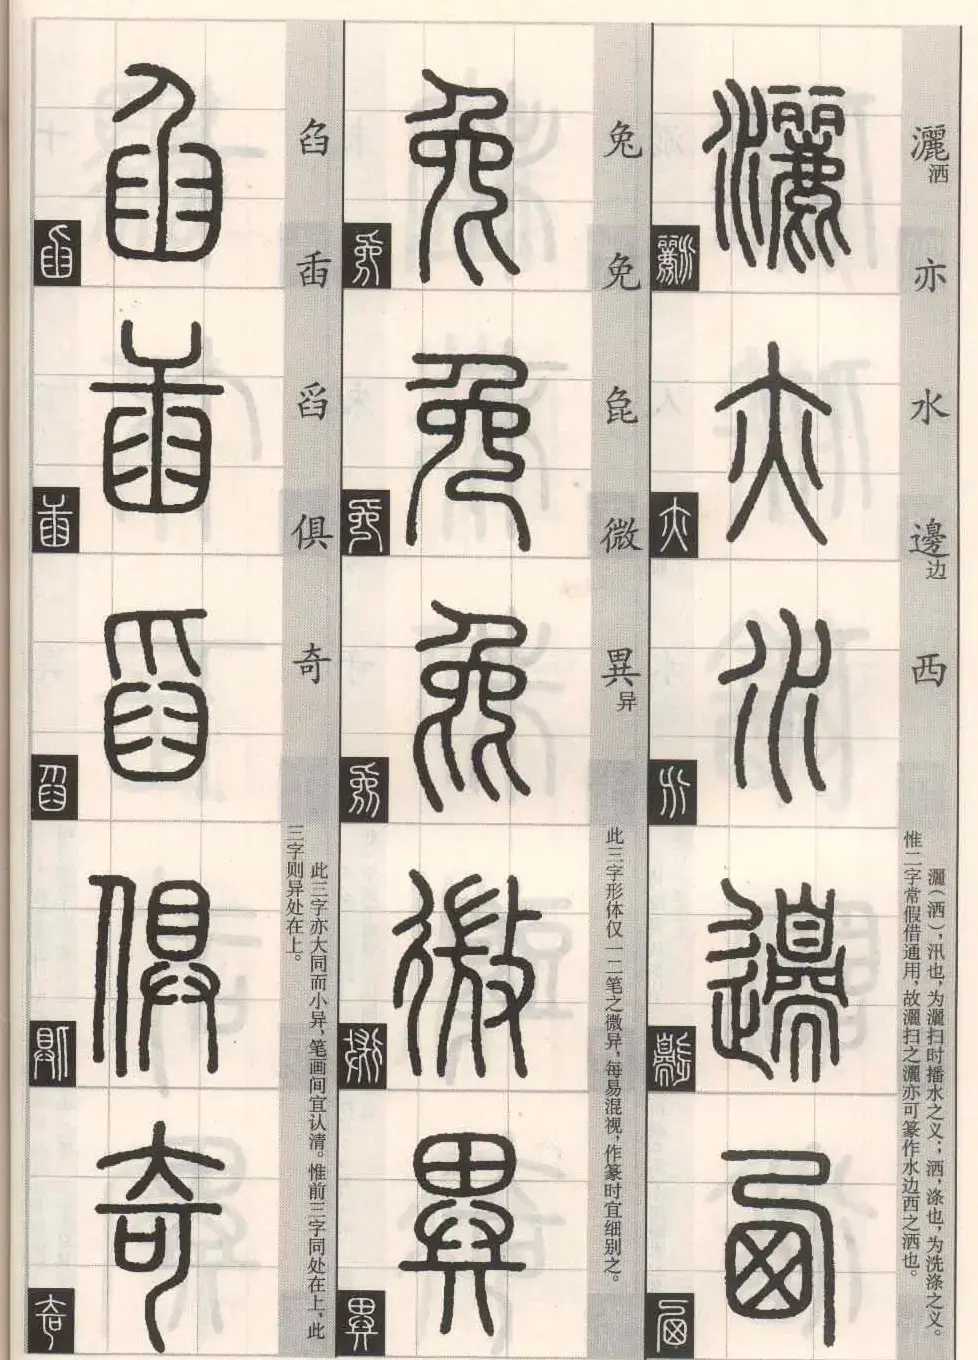 灑洒
亦
水
邊边
西
灑（洒），汛也，为灑扫时播水之义；洒，涤也，为洗涤之义。
惟二字常假借通用，故灑扫之灑亦可篆作水边西之洒也。
兔
免
㲋
微
異异
此三字形体仅一二笔之微异，每易混视，作篆时宜细别之。
臽
臿
舀
俱
奇
此三字亦大同而小异，笔画间宜认清。惟前三字同处在上，此
三字则异处在上。